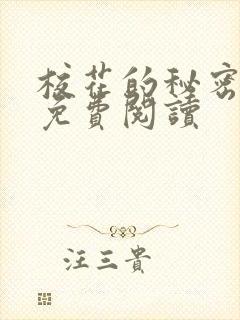 校花的秘密
免費閱讀
汪三貴